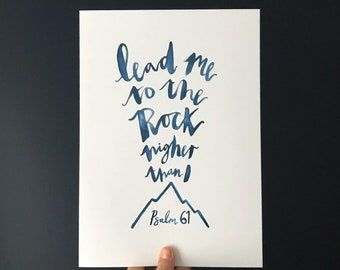 lead me
to the
Rock
higher
than I
Psalm 61